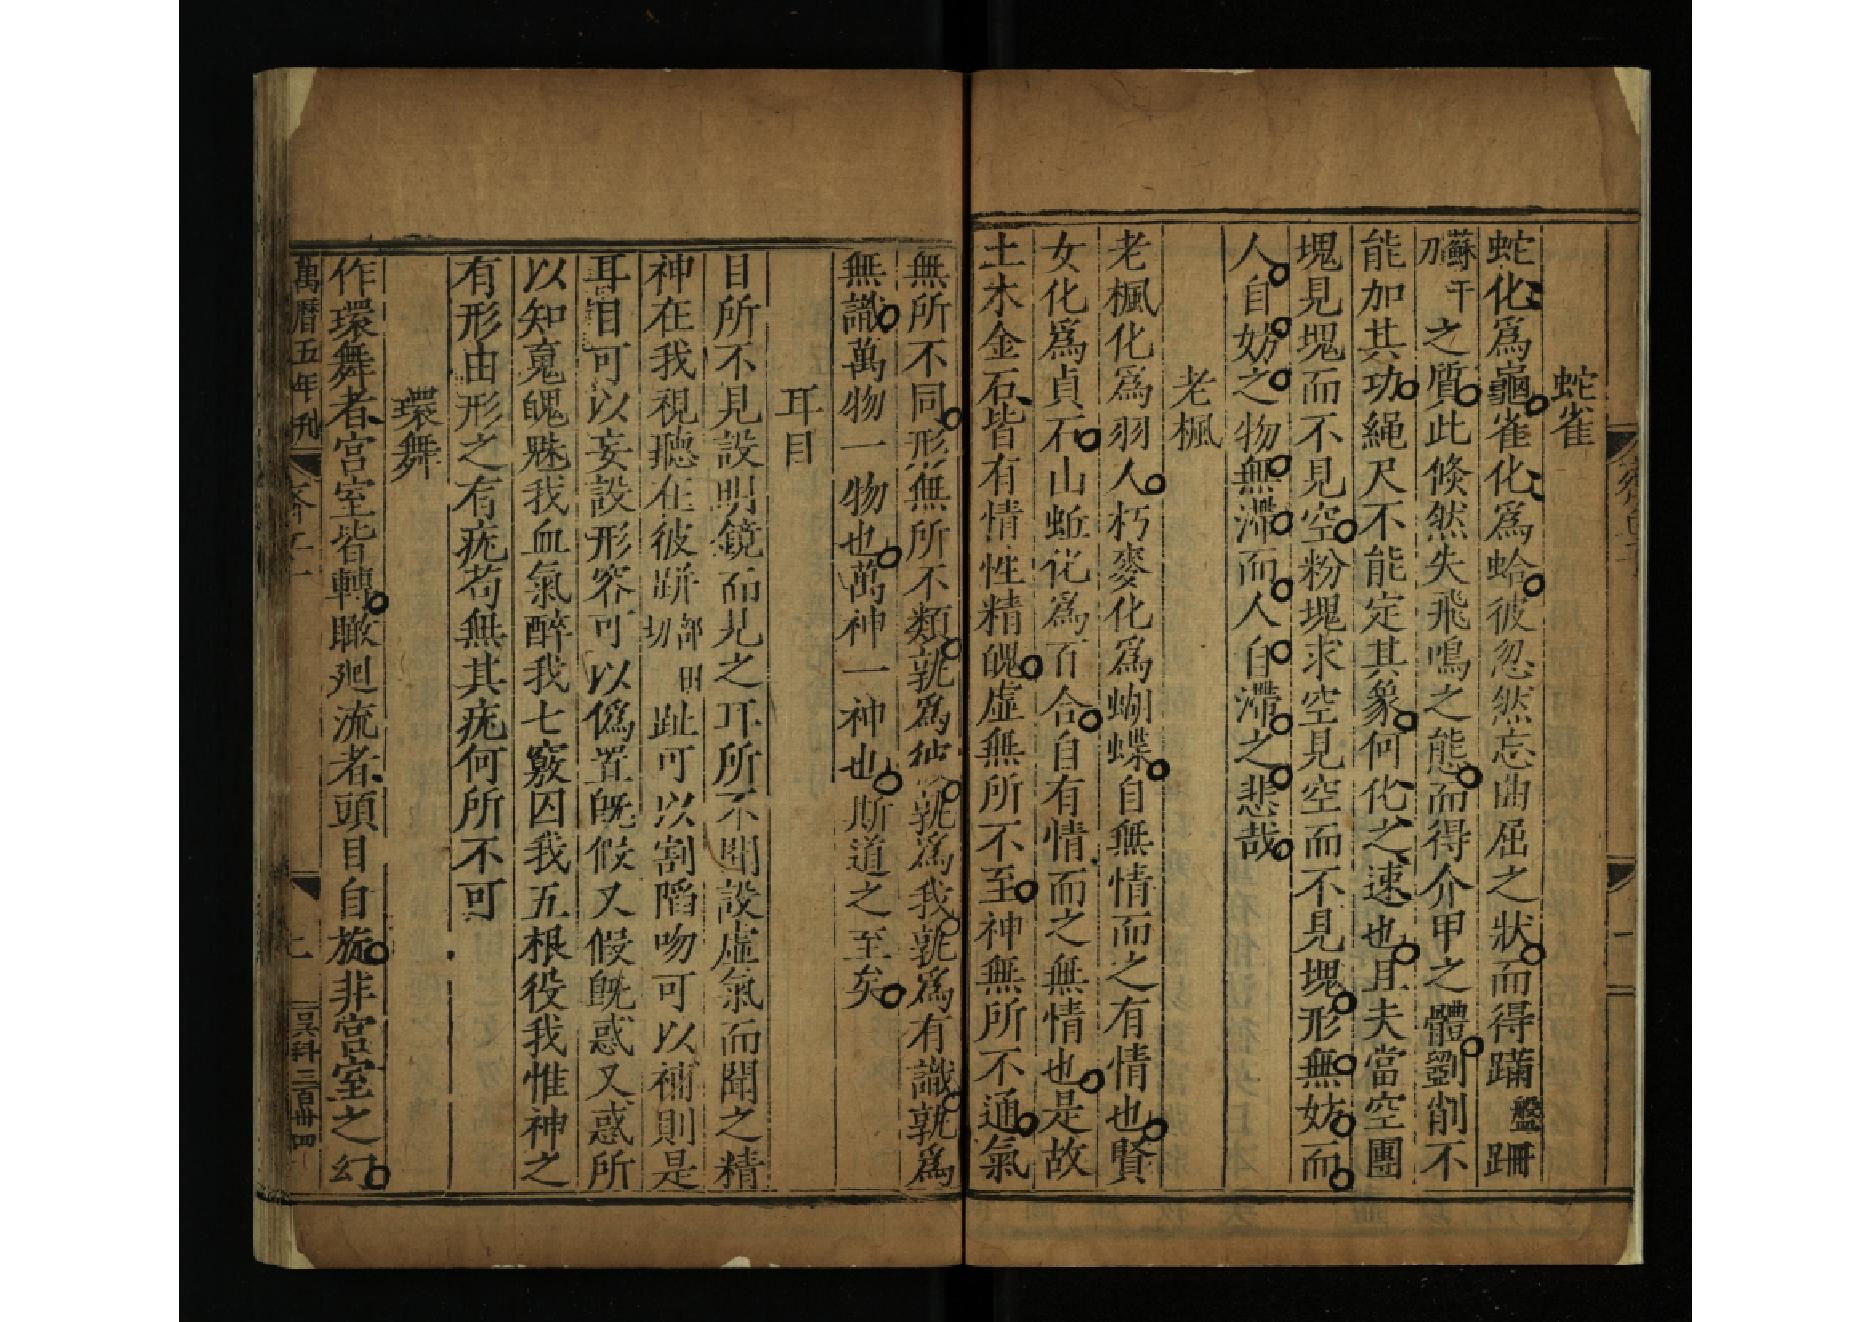 蛇雀
蛇化爲龜雀化爲蛤彼忽然忘曲屈之狀而得蹣盤跚
蘇干刀之質此倐然失飛鳴之態而得介甲之體斵削不
能加其功繩尺不能定其象何化之速也且夫當空團
塊見塊而不見空粉塊求空見空而不見塊形無妨而
人自妨之物無滯而人自滯之悲哉
老楓
老楓化爲羽人朽麥化爲蝴蝶自無情而之有情也賢
女化爲貞石山蚯化爲百合自有情而之無情也是故
土木金石皆有情性精魄虛無所不至神無所不通氣
無所不同形無所不類孰爲彼孰爲我孰爲有識孰爲
無識萬物一物也萬神一神也斯道之至矣
耳目
目所不見設明鏡而見之耳所不聞設虛氣而聞之精
神在我視聽在彼跰部田切趾可以割陷吻可以補則是
耳目可以妄設形容可以僞置旣假又假旣惑又惑所
以知䰟魄魅我血氣醉我七竅囚我五根役我惟神之
有形由形之有疣苟無其疣何所不可
環舞
作環舞者宮室皆轉瞰廻流者頭目自旋非宮室之幻
萬曆五年刋
七
三百卅四